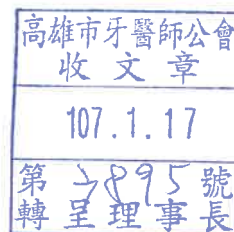 高雄市牙醫師公會
收文章
107.1.17
第2895號
轉呈理事長